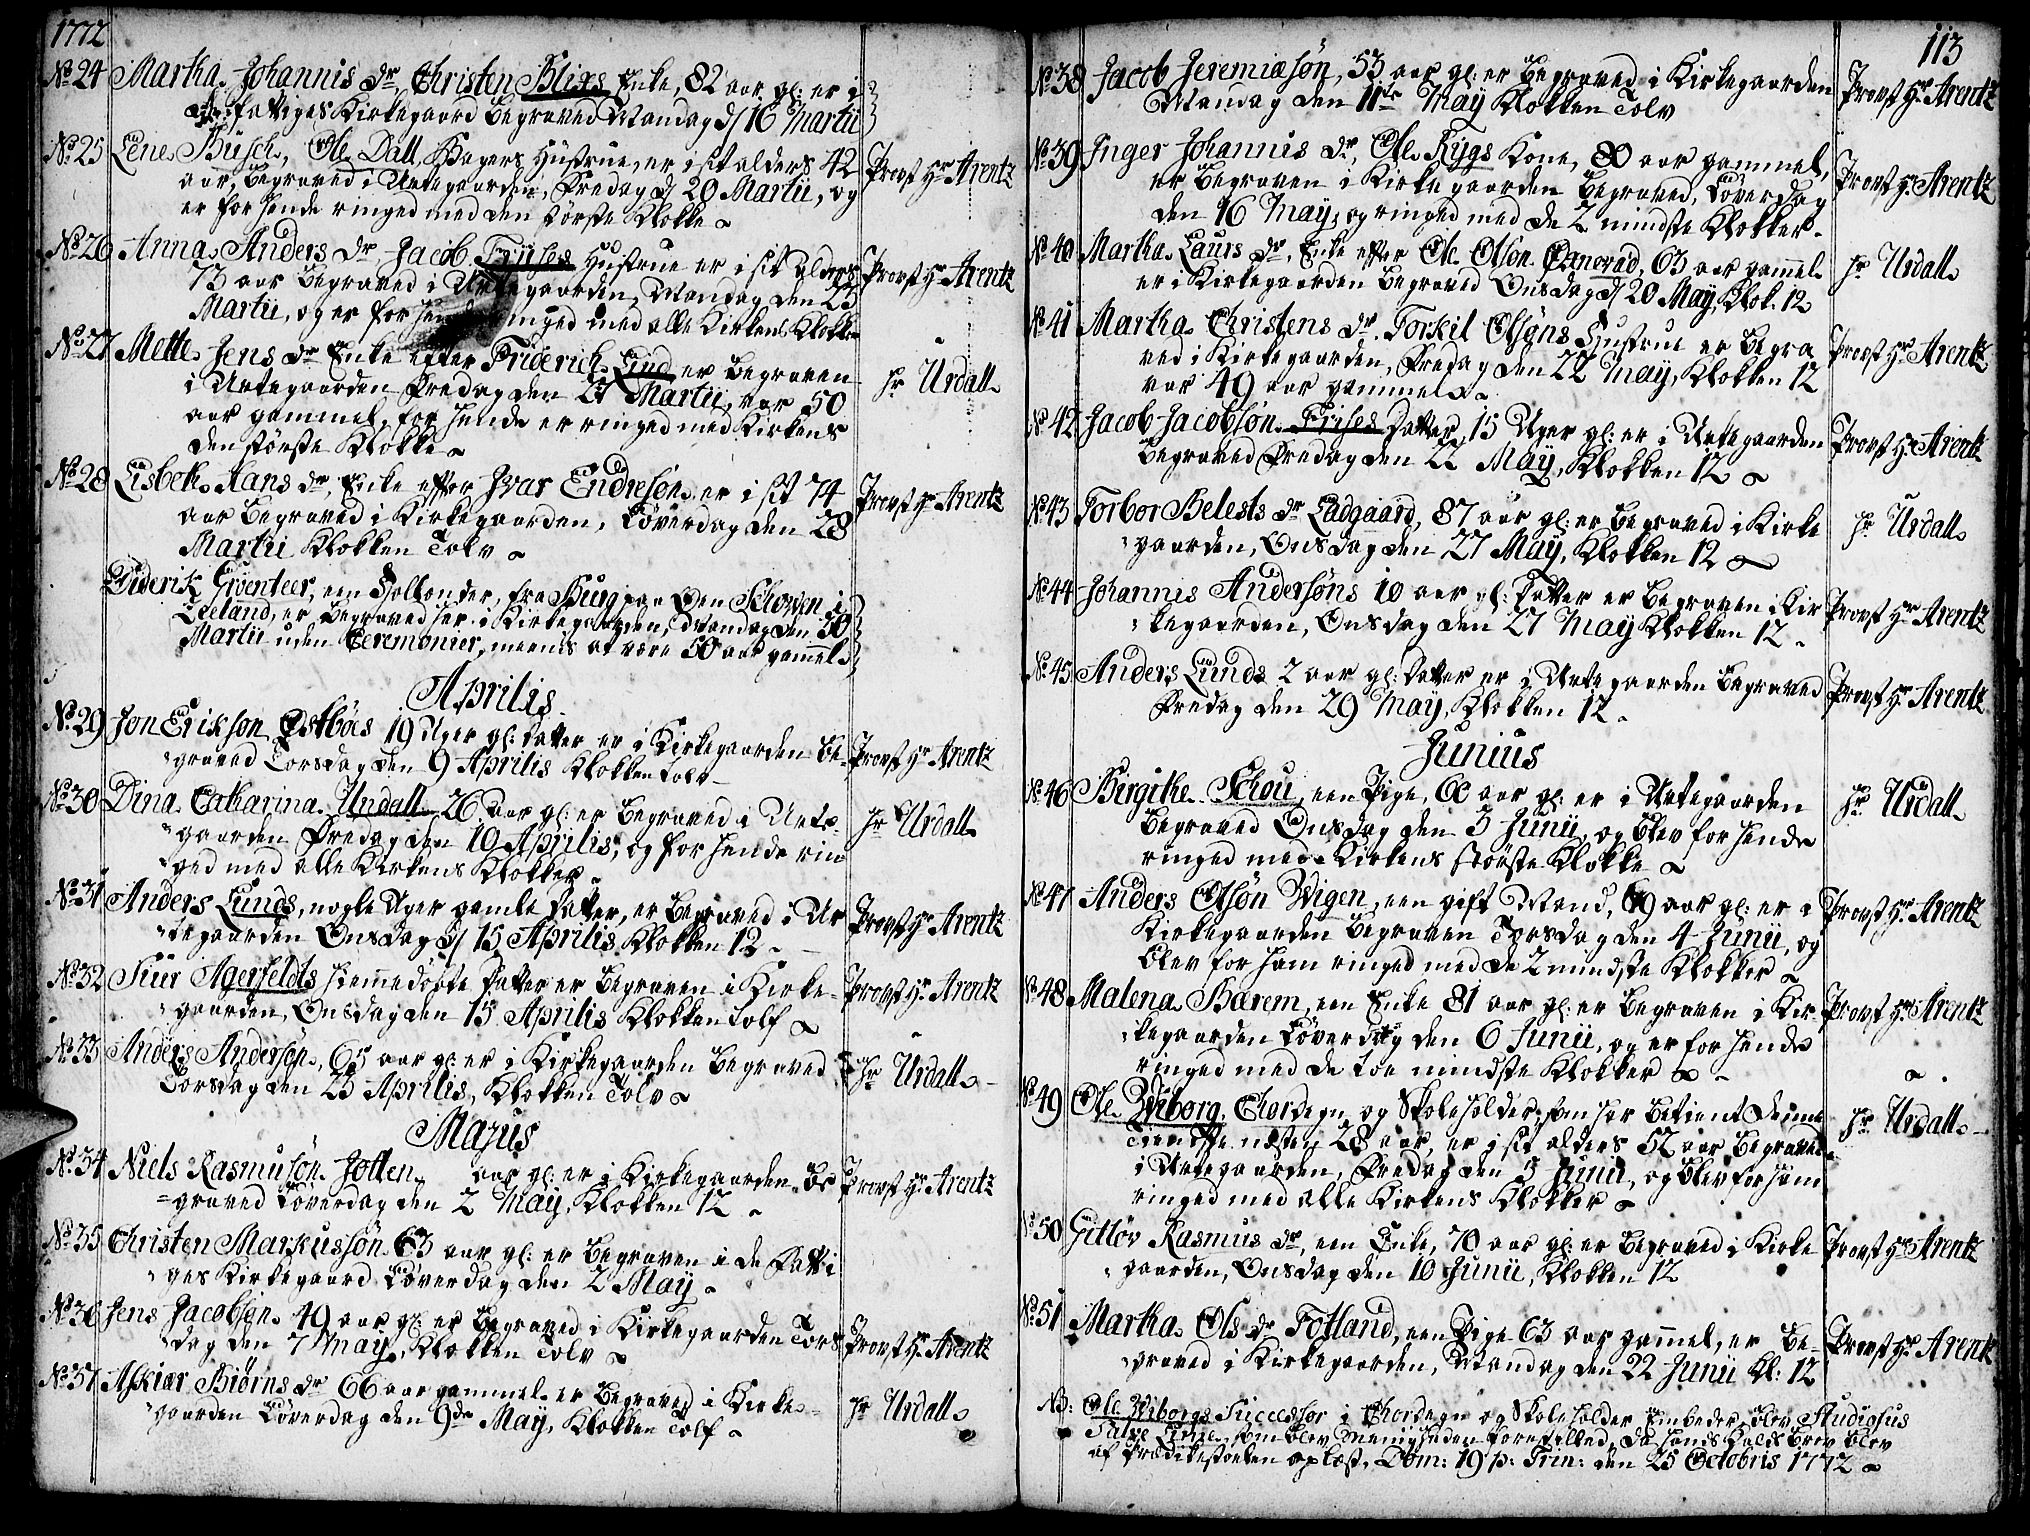 1772
No. 24 Martha Johannis dr, Christen Blixs Enke, 82 aar gl: er i
de Fattiges Kirkegaard Begraved Mandag d/ 16 Martii
No. 25 Lene Busch, Ole Dall, Bagers Hustrue, er i sit alders 42
aar, Begraved i Urtegaarden, Fredag d/ 20 Martii, og
er for hende ringed med den største Klokke
Provst Hr Arentz
No. 26 Anna Anders dr Jacob Friises Hustrue er i sit alders
73 aar Begraved i Urtegaarden, Mandag den 23
Martii, og er for hende ringed med alle Kirkens Klokker
Provst Hr Arentz
No. 27 Mette Jens dr Enke efter Friderich Lind er Begraven
i Urtegaarden Fredag den 27 Martii, var 50
aar gammel, for hende er ringed med Kirkens
den største Klokke
Hr Urdall
No. 28 Lisbeth Hans dr, Enke efter Ivar Endresøn er i sit 74
aar Begraved i Kirkegaarden, Løverdag den 28
Martii Klokken Tolv
Provst Hr Arentz
Diderik Groenteer, een Hollender, fra Burg paa Øen Schowen i
Zeeland, er Begraved her i Kirkegaarden, Mandag den 30
Martii uden Ceremonier, meenes at være 50 aar gammel
Aprilis
No. 29 Jon Erikson Østbøes 19 Uger gl: datter er i Kirkegaarden Be-
graved Torsdag den 9 Aprilis Klokken tolv
Provst Hr Arentz
No. 30 Dina Catharina Undall 26 aar gl: er Begraved i Urte-
gaarden Fredag den 10 Aprilis, og for hende rin
ged med alle Kirkens Klokker
Hr Urdall
No. 31 Anders Lunds, nogle Uger gamle datter, er Begraved i Ur
tegaarden Onsdag d/ 15 Aprilis Klokken 12
Provst Hr Arentz
No. 32 Siur Agerfeldts hiemmedøbte datter er Begraven i Kirke-
gaarden, Onsdag den 15 Aprilis Klokken Tolf
Provst Hr Arentz
No. 33 Anders Andersøn, 65 aar gl: er i Kirkegaarden Begraved
Torsdag den 23 Aprilis, Klokken Tolv
Hr Urdall
Majus
No. 34 Niels Rasmusøn Jotten, aar gl: er i Kirkegaarden Be
graved Løverdag den 2 May, Klokken 12
Provst Hr Arentz
No. 35 Christen Markussøn 63 aar gl: er Begraven i de Fatti
ges Kirkegaard Løverdag den 2 May
No. 36 Jens Jacobsen 40 aar gl: er Begraved i Kirkegaarden Tors
dag den 7 May, Klokken Tolv
Provst Hr Arentz
No. 37 Askiær Biørns dr 66 aar gammel er Begraved i Kirke-
gaarden Løverdag den 9de May, Klokken Tolf
Hr Urdall
113
No. 38 Jacob Jeremiæsøn, 53 aar gl: er Begraved i Kirkegaarden
Mandag den 11te May Klokken Tolv
Provst Hr Arentz
No. 39 Inger Johannis dr, Ole Rygs Kone, 80 aar gammel,
er Begraven i Kirkegaarden Begraved, Løverdag
den 16 May, og ringed med de 2 mindste Klokker
Provst Hr Arentz
No. 40 Martha Laurs dr, Enke efter Ole Olsøn, 63 aar gammel
er i Kirkegaarden Begraved Onsdag d/ 20 May, Klok. 12
Hr Urdall
No. 41 Martha Christens dr. Torkil Olsøns Hustrue er Begra
ved i Kirkegaarden, Fredag den 22 May, Klokken 12
var 49 aar gammel
Provst Hr Arentz
No. 42 Jacob Jacobsøn Frises datter, 15 Uger gl: er i Urtegaarden
Begraved Fredag den 22 May, Klokken 12
Provst Hr Arentz
No. 43 Torbor Belests dr Ladgaard, 87 aar gl: er Begraved i Kirke
gaarden, Onsdag den 27 May, Klokken 12
Hr Urdall
No. 44 Johannis Andersøns 10 aar gl: datter er Begraven i Kir
kegaarden, Onsdag den 27 May Klokken 12
Provst Hr Arentz
No. 45 Anders Lunds 2 aar gl: datter er i Urtegaarden Begraved
Fredag den 29 May, Klokken 12
Provst Hr Arentz
Junius
No. 46 Birgithe Schou, een Pige, 60 aar gl: er i Urtegaarden
Begraved Onsdag den 3 Junii, og blev for hende
ringed med Kirkens største Klokke
Hr Urdall
No. 47 Anders Olsøn Wigen, een gift Mand, 69 aar gl: er i
Kirkegaarden Begraven Torsdag den 4 Junii, og
blev for ham ringed med de 2 mindste Klokker
Provst Hr Arentz
No. 48 Malena Barem, een Enke 81 aar gl: er Begraven i Kir-
kegaarden Løverdag den 6 Junii, og er for hende
ringed med de toe mindste Klokker
Provst Hr Arentz
No. 49 Ole Wiborg, Chordegn og Skoleholder, som har betient denne
Tieneste næsten 28 aar, er i sit alders 52 aar Begraved
i Urtegaarden, Fredag den 5 Junii, og blev for ham
ringed med alle Kirkens Klokker
Hr Urdall
No. 50 Gitlov Rasmus dr, een Enke, 70 aar gl: er Begraved i Kirke
gaarden, Onsdag den 10 Junii, Klokken 12
Provst Hr Arentz
No. 51 Martha Ols dr Fotland, een Pige 63 aar gammel, er Be-
graved i Kirkegaarden, Mandag den 22 Junii Kl: 12
Provst Hr Arentz
NB: Ole Wiborgs Successor i Chordegn og Skoleholder Embeder blev Studiosus
som blev Menigheden forestilled, da hands Kalds Brev blev
af Prædikestoelen oplæst, Dom: 19 p: Trin: den 25 Octobris 1772